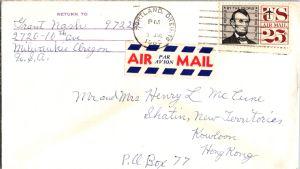 RETURN TO
Grant Nash 97222
2720-10th Ave
Milwaukie Oregon
U.S.A.
PORTLAND, OREG
PM
US
AIR MAIL
25
AIR PAR AVION MAIL
Mr and Mrs Henry L. McClure
Shatin, New Territories
Kowloon
Hong Kong
P.O. Box 77